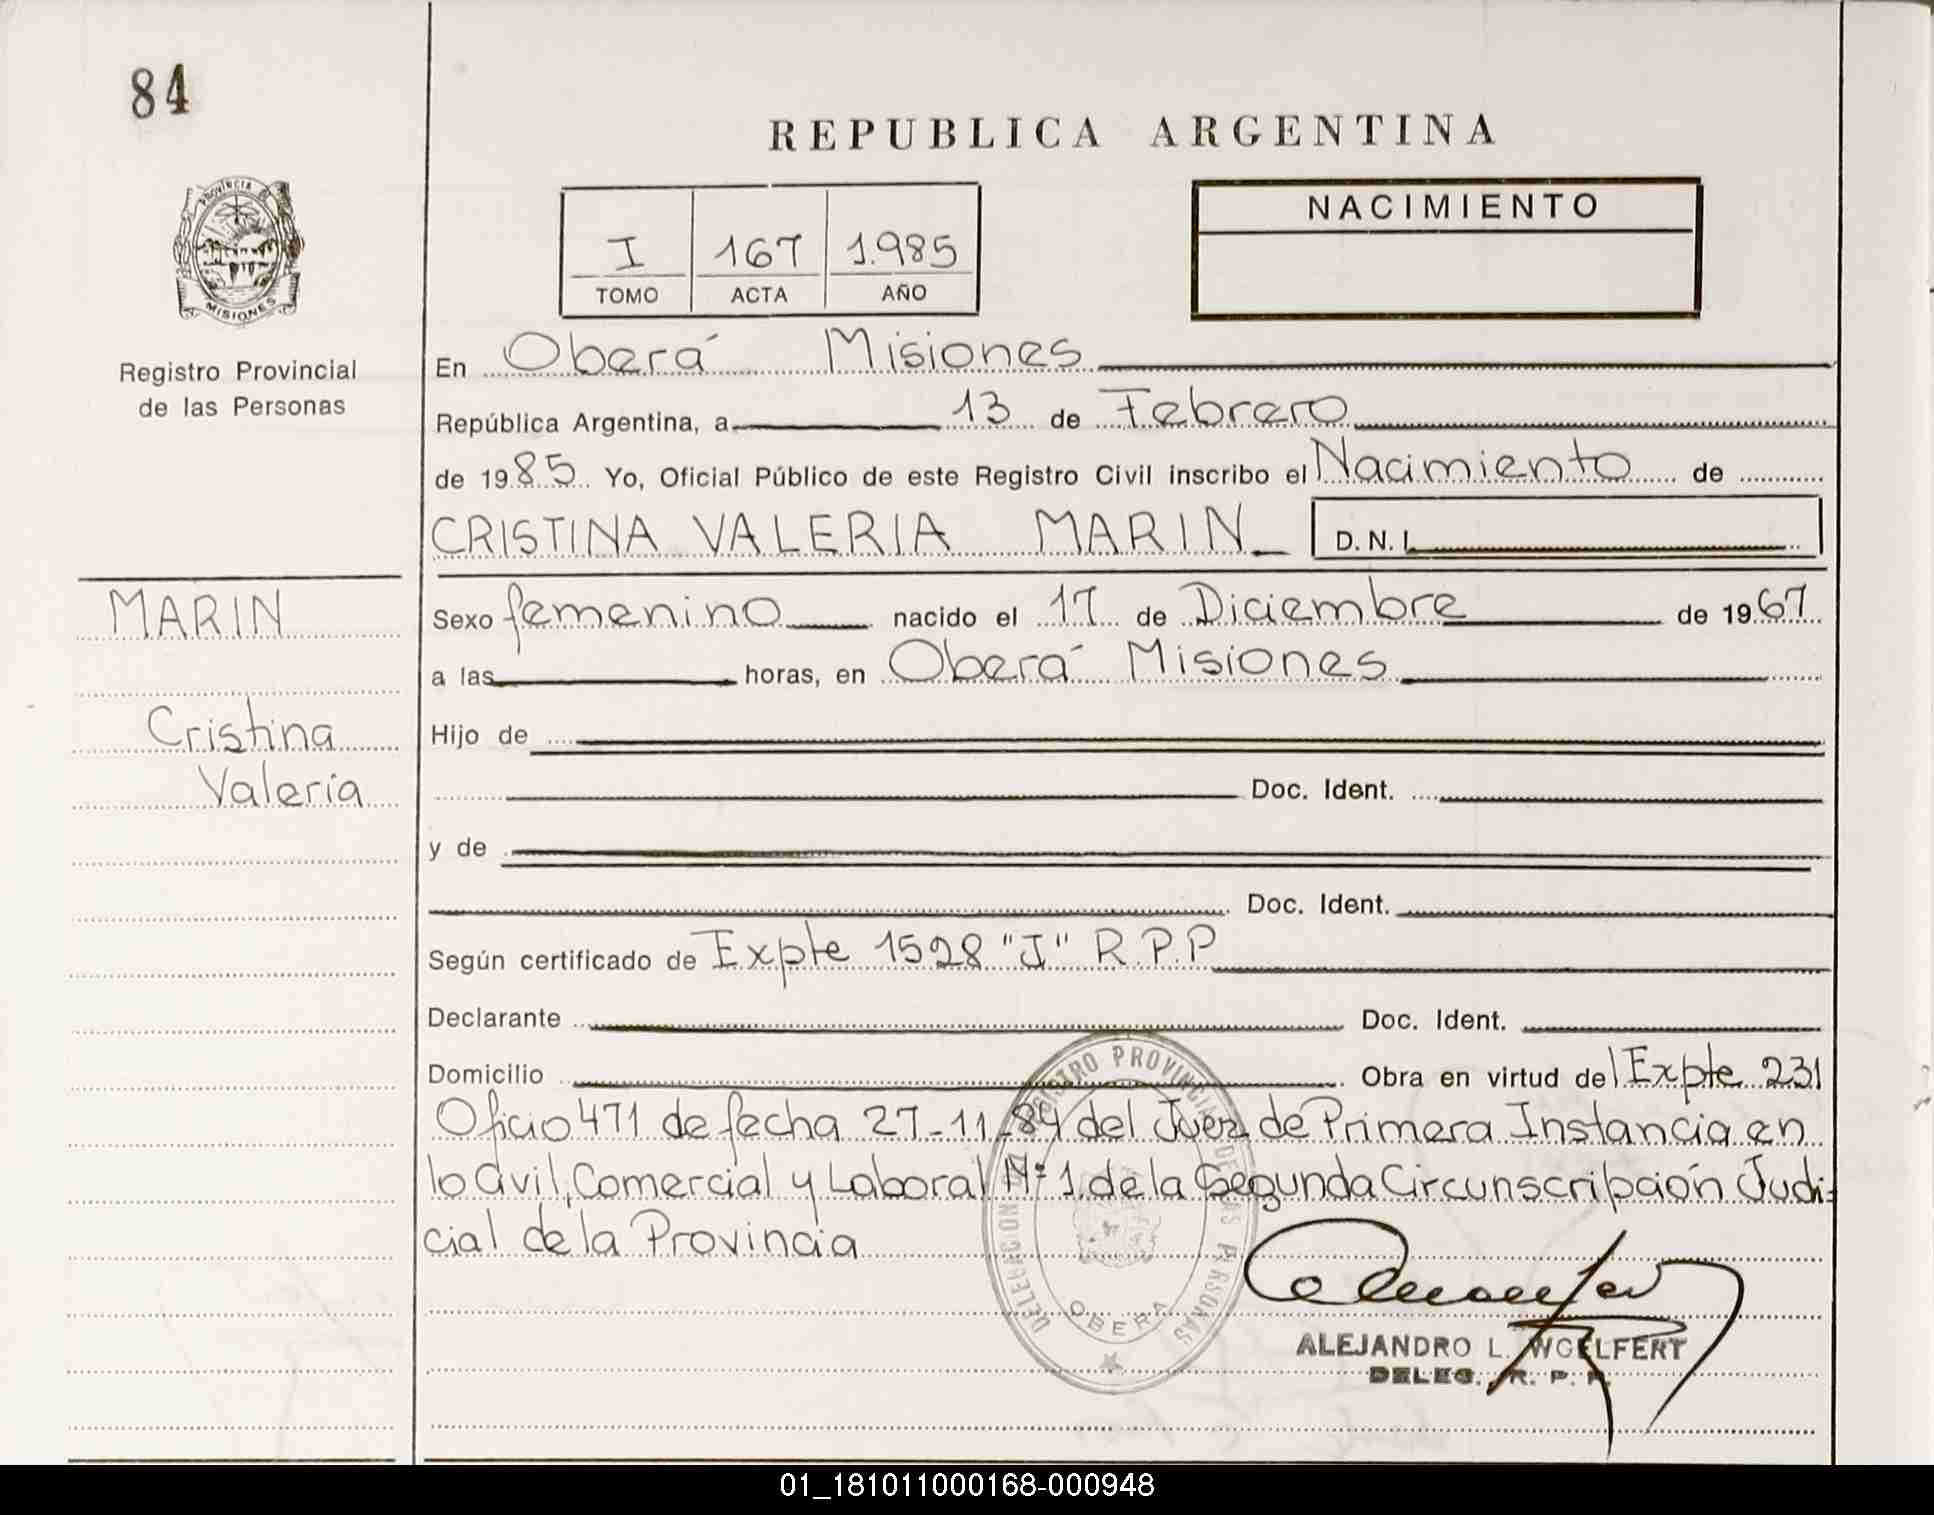 84
REPUBLICA ARGENTINA
PROVINCIA DE
MISIONES
Registro Provincial
de las Personas
I 167 1.985
TOMO ACTA AÑO
NACIMIENTO
En Oberá Misiones
República Argentina, a 13 de Febrero
de 1985 Yo, Oficial Público de este Registro Civil inscribo el Nacimiento de
CRISTINA VALERIA MARIN D.N.I.
MARIN
Cristina
Valeria
Sexo femenino nacido el 17 de Diciembre de 1967
a las horas, en Oberá Misiones
Hijo de
Doc. Ident.
y de
Doc. Ident.
Según certificado de Expte 1528 "J" R.P.P
Declarante Doc. Ident.
Domicilio Obra en virtud del Expte 231
Oficio 471 de fecha 27-11-84 del Juez de Primera Instancia en
lo Civil, Comercial y Laboral Nº 1 de la Segunda Circunscripción Judi-
cial de la Provincia
DELEGACION REGISTRO PROVINCIAL DE LAS PERSONAS
OBERA
ALEJANDRO L. WOELFERT
DELEG. R. P. P.
01_181011000168-000948